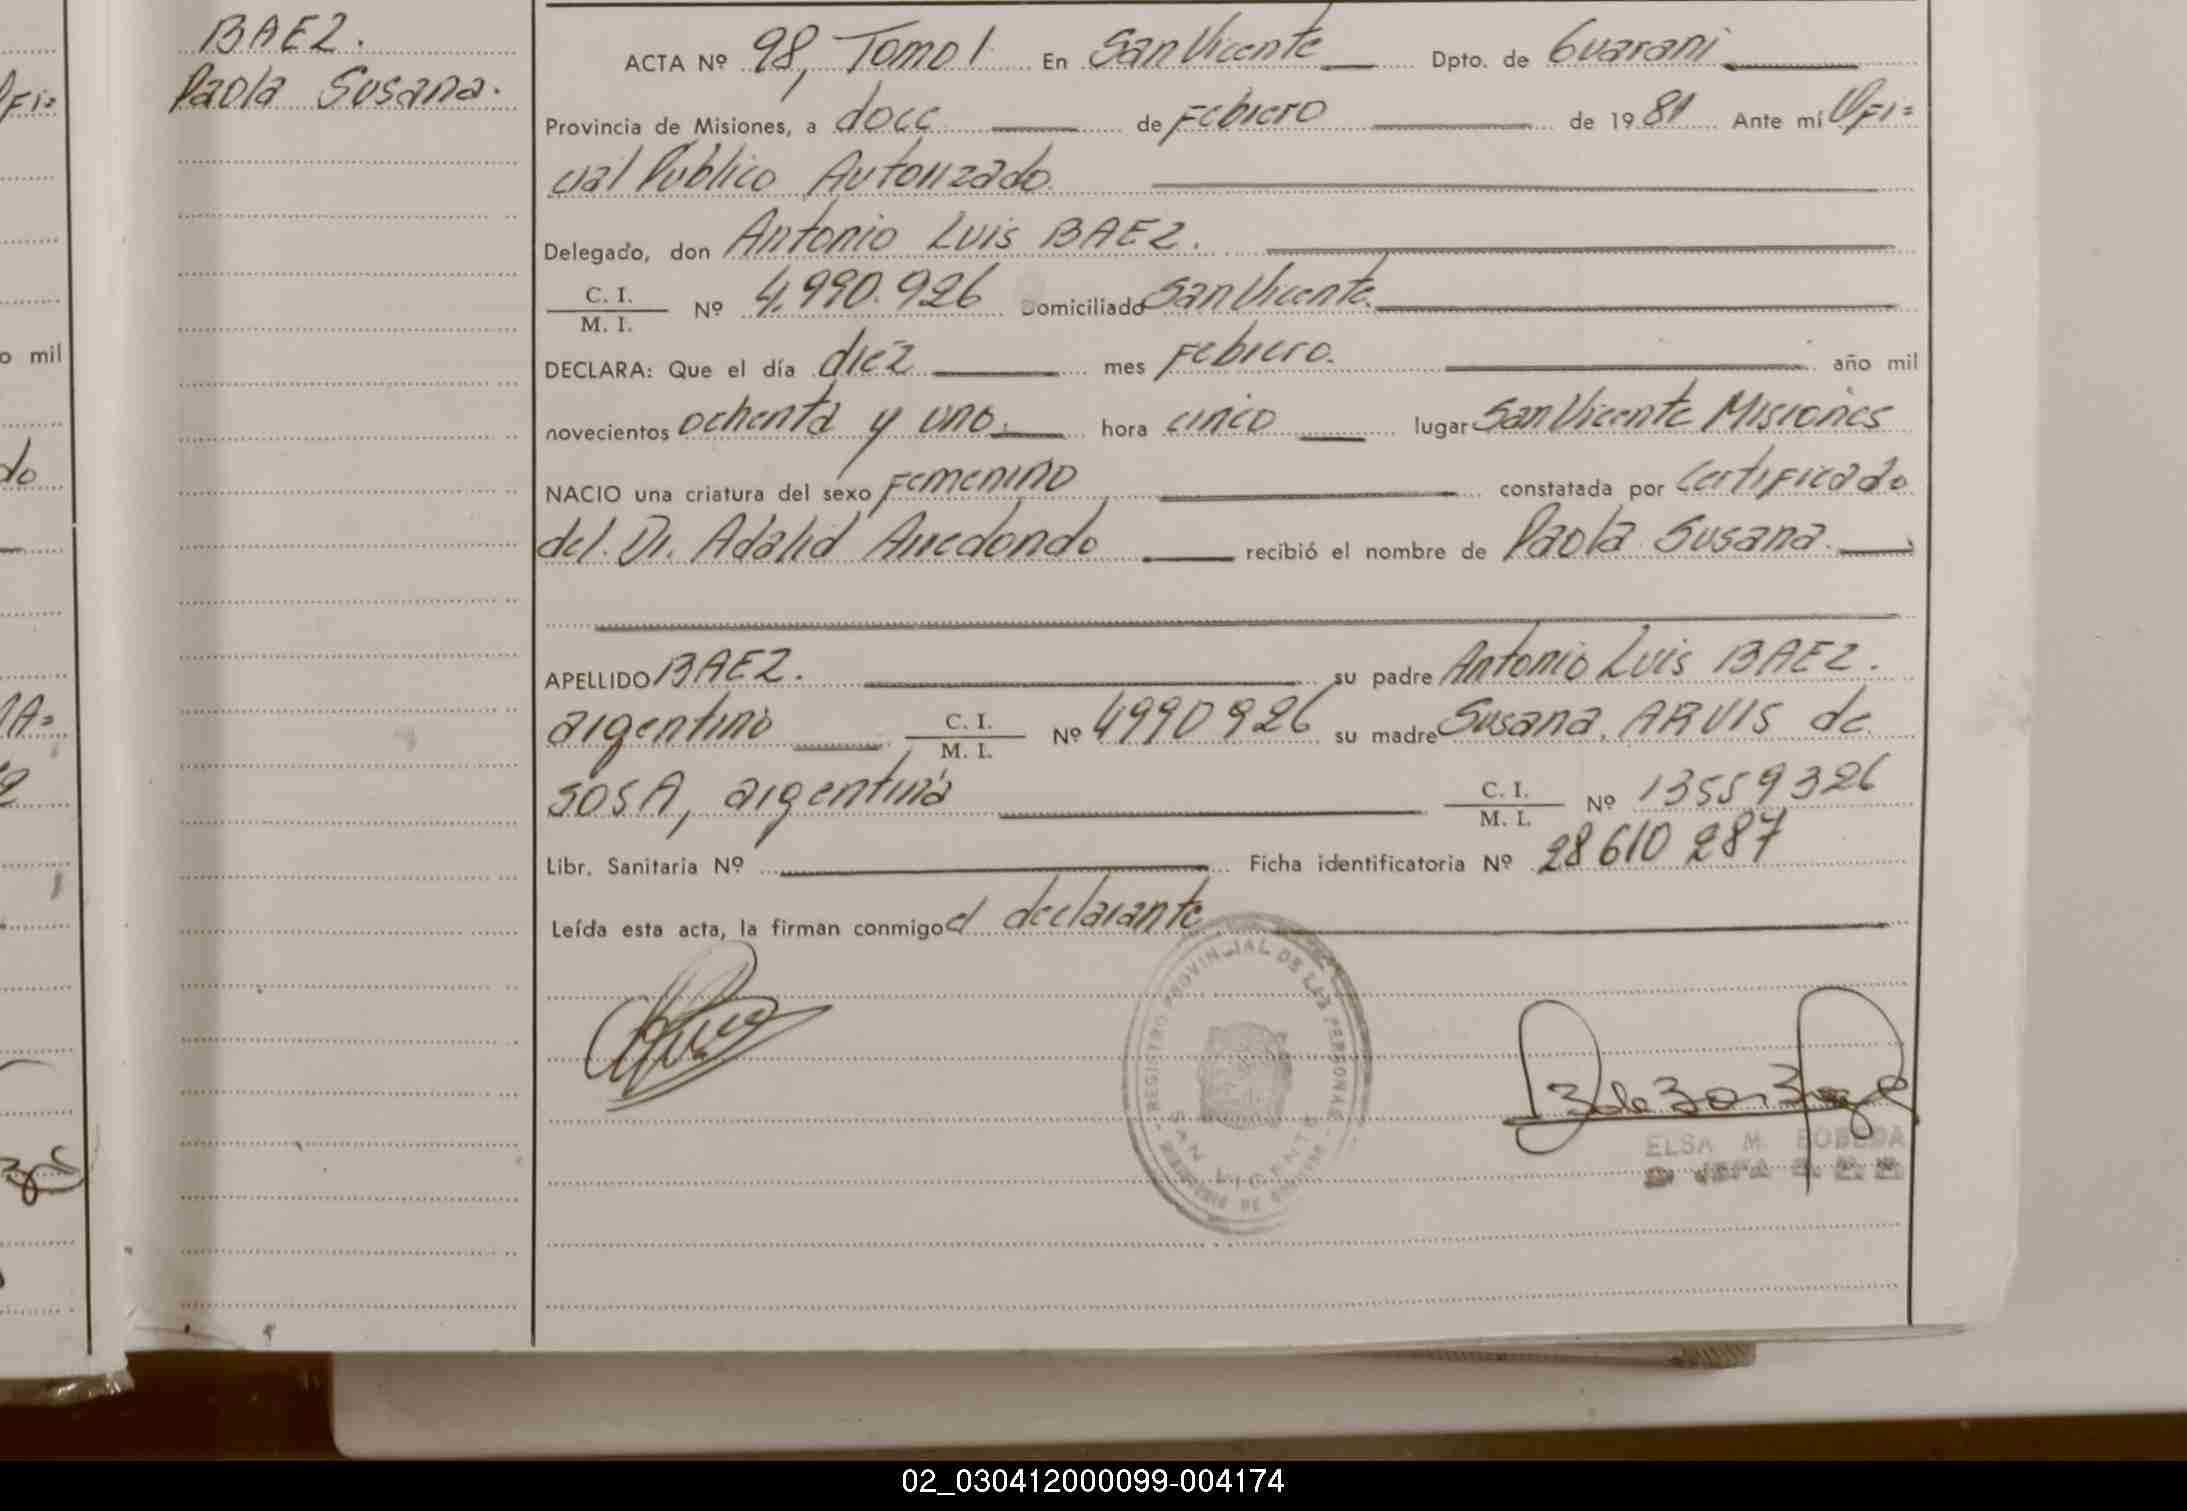 BAEZ.
Paola Susana.
ACTA Nº 98, Tomo I En San Vicente Dpto. de Guarani
Provincia de Misiones, a doce de Febrero de 1981 Ante mí Ofi=
cial Público Autorizado
Delegado, don Antonio Luis BAEZ.
C. I.
M. I. Nº 4,990.926 Domiciliado San Vicente.
DECLARA: Que el día diez mes Febrero. año mil
novecientos ochenta y uno. hora cinco lugar San Vicente Misiones
NACIO una criatura del sexo Femenino constatada por Certificado
del. Dr. Adalid Arredondo recibió el nombre de Paola Susana.
APELLIDO BAEZ. su padre Antonio Luis BAEZ.
argentino C. I.
M. I. Nº 4990926 su madre Susana. ARVIS de
SOSA, argentina C. I.
M. I. Nº 13559326
Libr. Sanitaria Nº Ficha identificatoria Nº 28610287
Leída esta acta, la firman conmigo el declarante
REGISTRO PROVINCIAL DE LAS PERSONAS
SAN VICENTE
ELSA M. BOBEDA
o mil
do
02_030412000099-004174